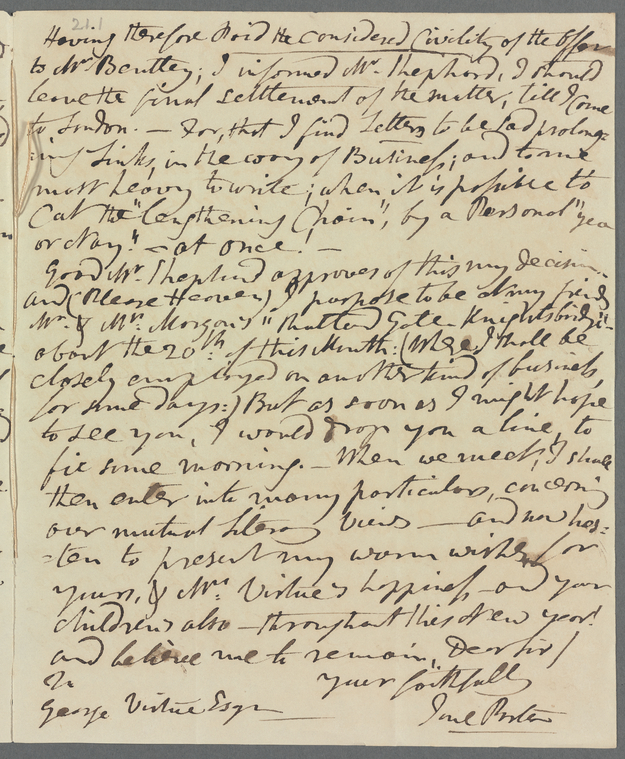 21.1
Having therefore paid the considered Civility of the Offer
to Mr Bentley; I informed Mr. Shepherd, I should
leave the final settlement of the matter, till I come
to London. — For, that I find Letters to be sad prolong-
-ing Links, in the way of Business; and to me
most heavy to write; when it is possible to
Cut the "lengthening Chain", by a Personal "yea
or Nay." — at once! —
Good Mr. Shepherd approves of this my decision.
and (Please Heaven) I purpose to be at my friends
Mr. & Mrs. Morgan's "Rutland Gate Knightsbridge" —
about the 20th. of this Month: (Where I shall be
closely employed on another kind of business,
for some days:) But as soon as I might hope
to see you, I would drop you a line, to
fix some morning. — When we meet, I shall
then enter into many particulars, concerning
our mutual Literary Views — and now has-
-ten to present my warm wishes for
yours, & Mrs. Virtue's happiness — and your
children's also — throughout this New year!
and believe me to remain, Dear Sir /
To your faithfully
George Virtue Esqr Jane Porter